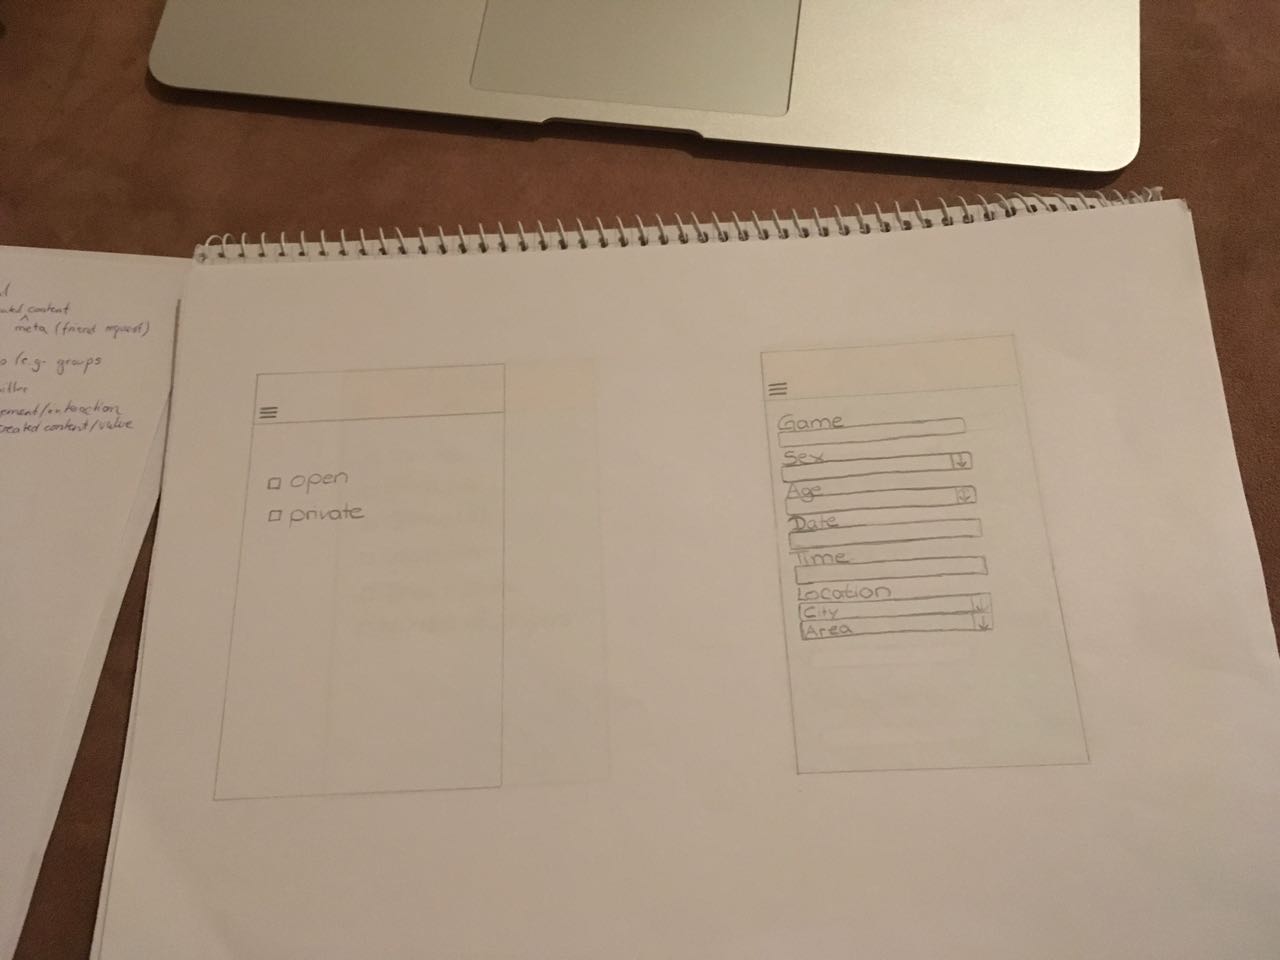 content
meta (friend request)
(e.g. groups
/interaction
created content/value
open
private
Game
Sex
Age
Date
Time
Location
City
Area